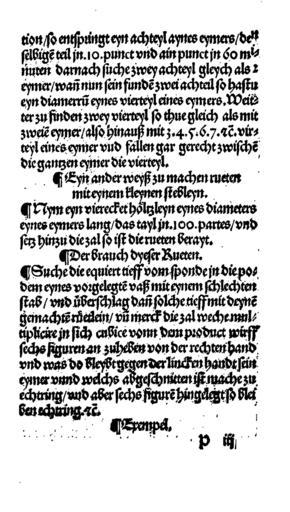 tion/so entspringt eyn achteyl aynes eymers/deß
selbigē teil jn.10.punct vnd ain punct in 60 mi⸗
nuten darnach suche zwey achteyl gleych als 2
eymer/wañ nun sein fundē zwei achteil so hastu
eyn diamerrū eynes vierteyl eines eymers. Weit⸗
ter zu finden zwey vierteyl so thue gleich als mit
zweiē eymer/also hinauß mit 3.4.5.6.7.ꝛc. vir⸗
teyl eines eymer vnd fallen gar gerecht zwischē
die gantzen eymer die vierteyl.
¶Eyn ander weyß zu machen rueten
mit eynem kleynen stebleyn.
¶Nym eyn vierecket höltzleyn eynes diameters
eynes eymers lang/das tayl jn.100.partes/vnd
setz hinzu die zal so ist die rueten berayt.
¶Der brauch dyser Rueten.
¶Suche die equiert tieff vom sponde jn die po⸗
dem eynes vorgelegtē vaß mit eynem schlechten
stab/vnd überschlag dañ solche tieff mit deynē
gemachtē rüetlein/vñ merck die zal weche mul⸗
tiplicire jn sich cubice vonn dem product wirff
sechs figuren an zuheben von der rechten hand
vnd was do bleybt gegen der lincken handt sein
eymer vnnd welchs abgeschniten ist mache zu
echtring/vnd aber sechs figurē hingelegt so blei
ben echtring.ꝛc.
¶Exempel.
P iij